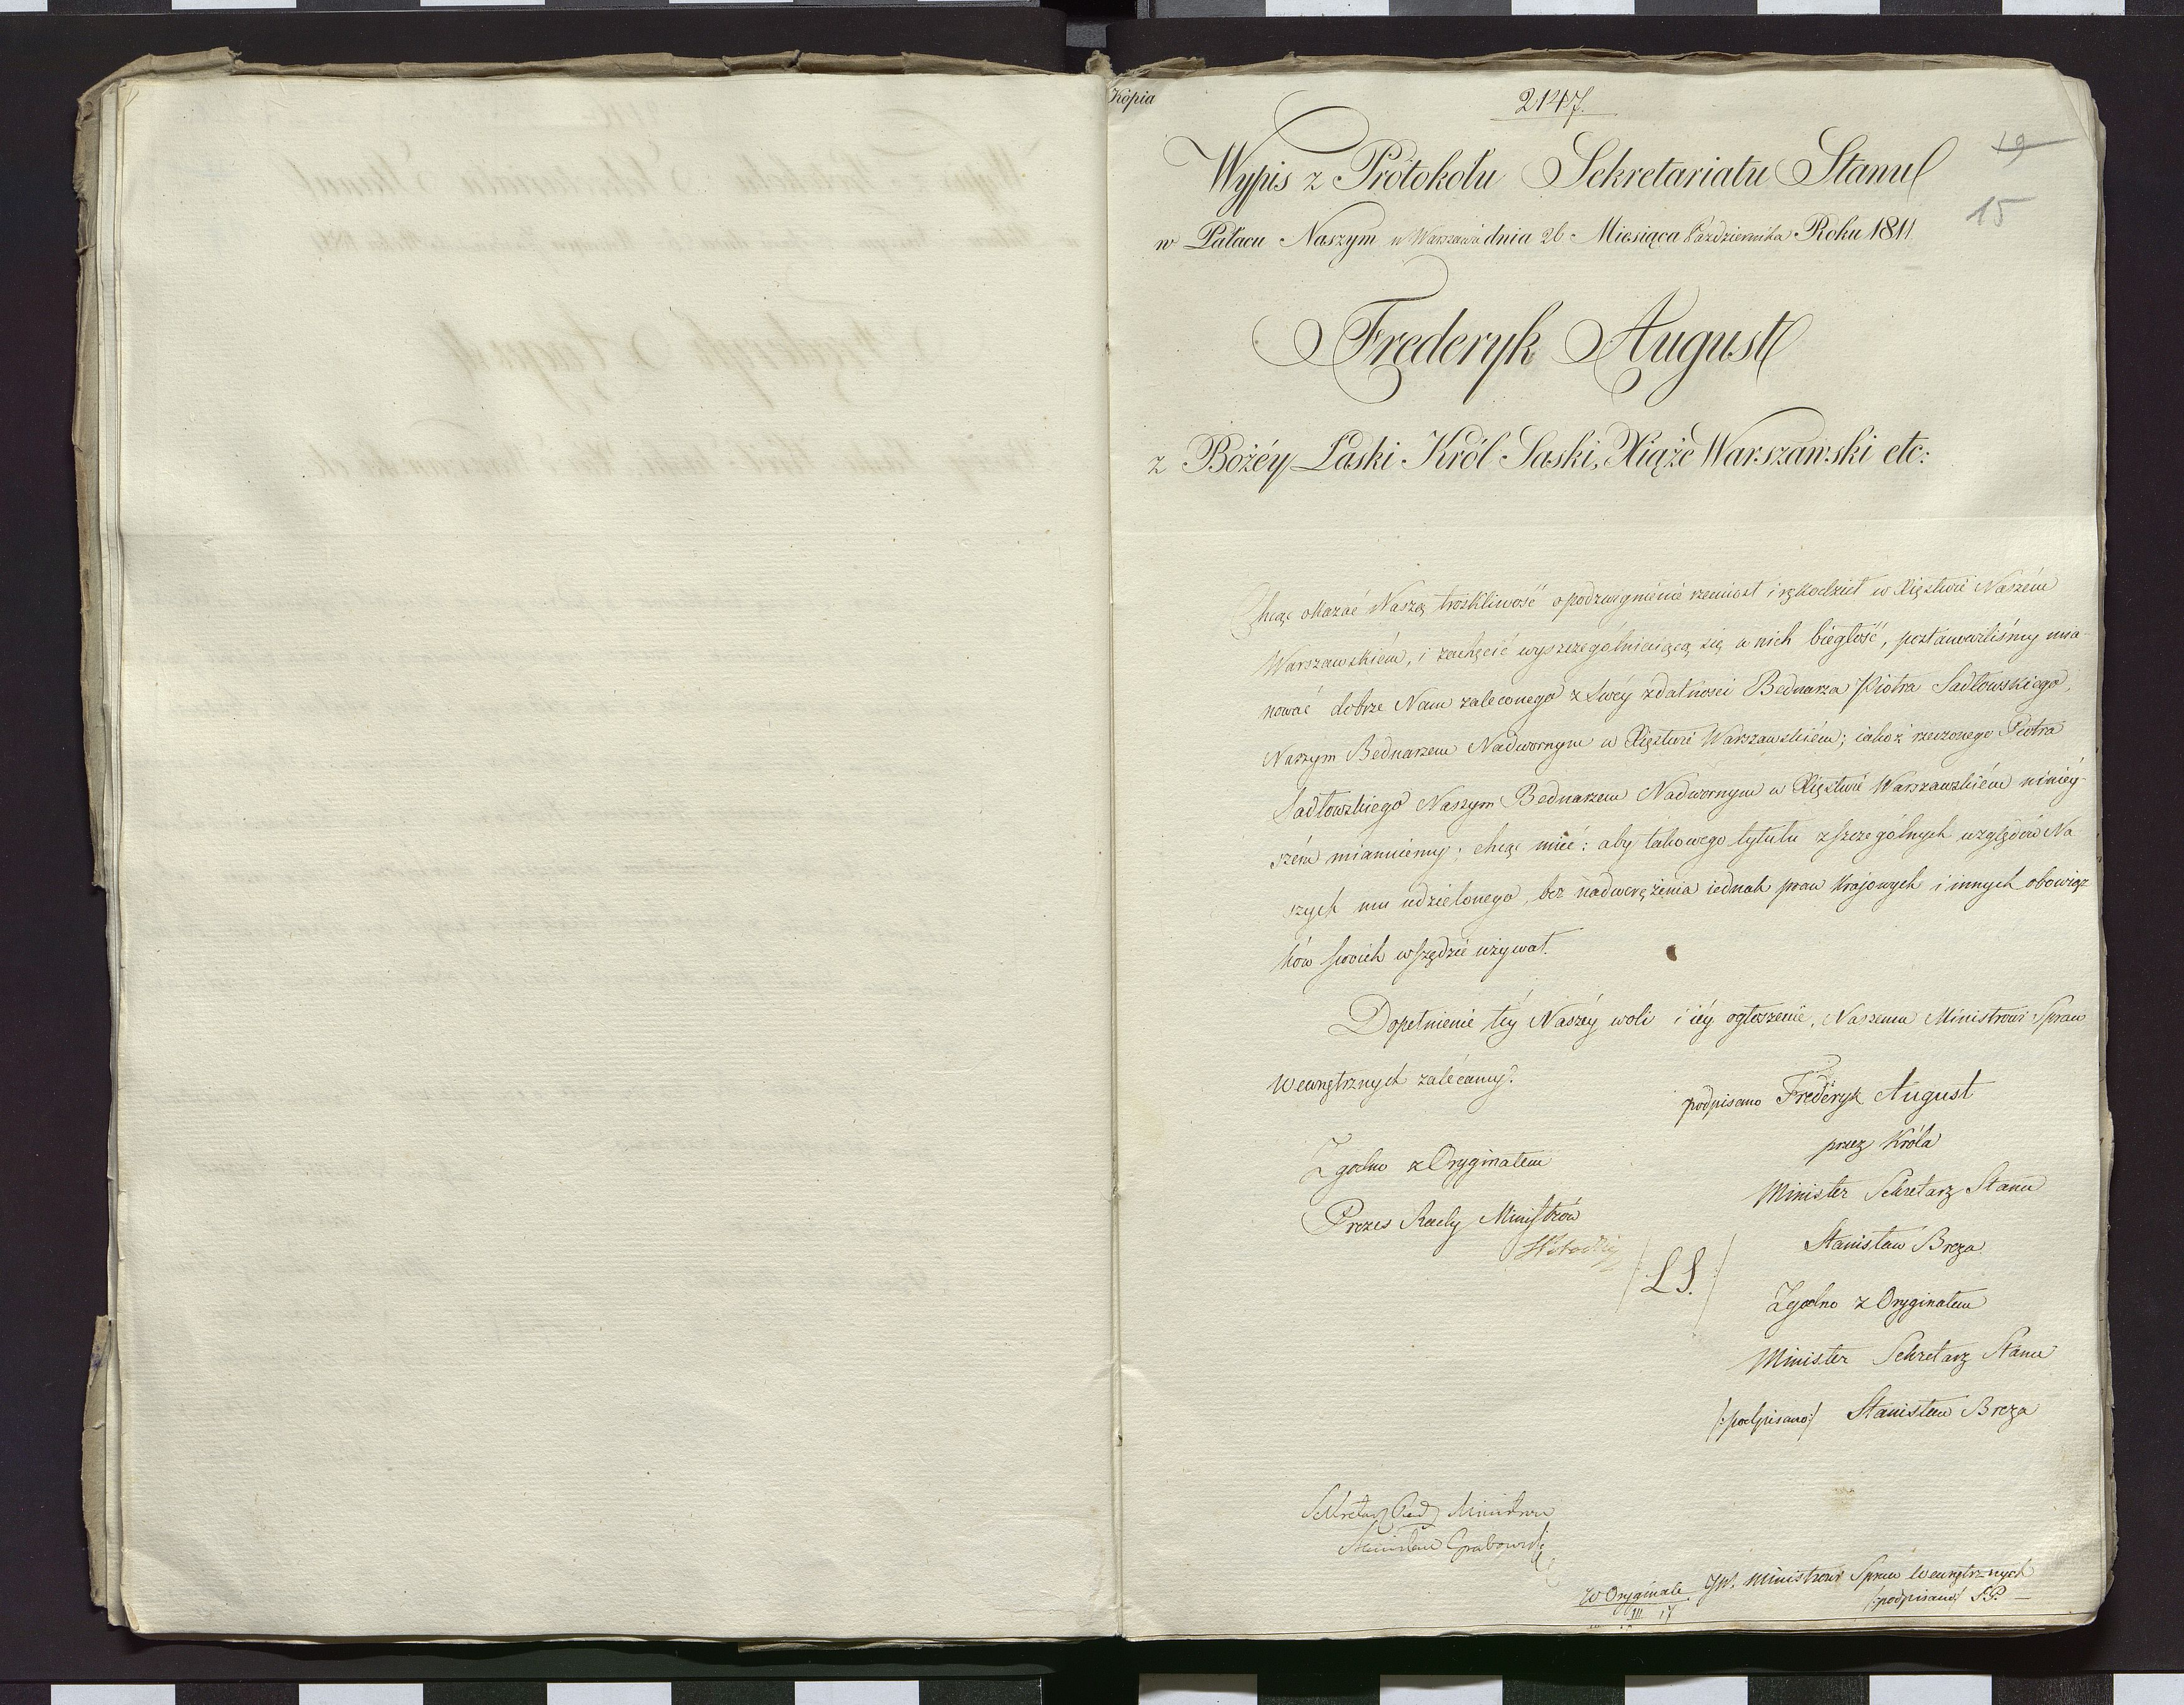 Kopia
2147.
19
Wypis z Protokołu Sekretariatu Stanu
15
w Pałacu Naszym w Warszawie dnia 26 Miesiąca Października Roku 1811
Frederyk August
z Bożéy Łaski Król Saski, Xiąże Warszawski etc:
Chcąc okazać Naszą troskliwość o podzwignienie rzemiost i rękodzieł w Xięstwie Naszém
Warszawskiém, i zachęcić wyszczególniaiącą się w nich biegłość, postanowiliśmy mia-
nować dobrze Nam zaleconego z swéy zdatności Bednarza Piotra Sadłowskiego,
Naszym Bednarzem Nadwornym w Xięstwie Warszawskiém; iakoż rzeczonego Piotra
Sadłowskiego Naszym Bednarzem Nadwornym w Xięstwie Warszawskiém niniéy-
szém mianuiemy; chcąc mieć: aby takowego tytułu z szczególnych względów Na
szych mu udzielonego, bez nadwerężenia iednak praw krajowych i innych obowiąz
ków swoich wszędzie używał.
Dopełnienie téy Naszéy woli i iéy ogłoszenie, Naszemu Ministrowi Spraw
Wewnętrznych zalécamy.
podpisano Frederyk August
przez Króla
Minister Sekretarz Stanu
Stanisław Breza
Zgodno z Oryginałem
Prezes Rady Ministrów
/LS./
Zgodno z Oryginałem
Minister Sekretarz Stanu
/:podpisano:/ Stanisław Breza
Sekretarz Rady Ministrów
Stanisław Grabowski
W Oryginale JW. Ministrowi Spraw Wewnętrznych
/:podpisano:/ S.P.
III 17